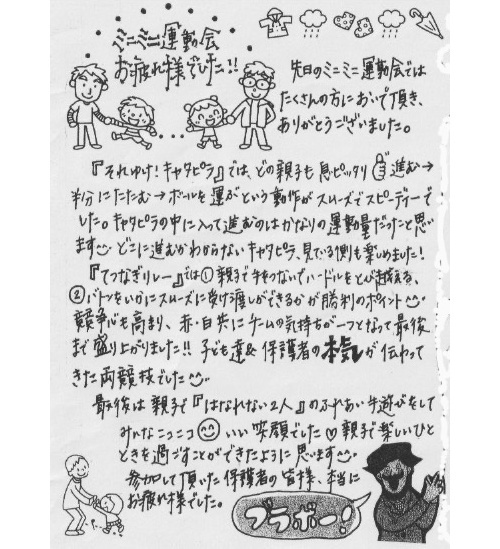 ミニミニ運動会
お疲れ様でした!!
先日のミニミニ運動会では
たくさんの方においで頂き、
ありがとうございました。
『それゆけ!キャタピラ』では、どの親子も息ピッタリ 進む→
半分にたたむ→ボールを運ぶという動作がスムーズでスピーディーで
した。キャタピラの中に入って進むのはかなりの運動量だったと思い
ます どこに進むかわからないキャタピラ、見ている側も楽しめました!
『てつなぎリレー』では①親子で手をつないでハードルをとび越える、
②バトンをいかにスムーズに受け渡しができるかが勝利のポイント
競争心も高まり、赤・白共にチームの気持ちが一つとなって最後
まで盛り上がりました!!子ども達&保護者の本気が伝わって
きた両競技でした
最後は親子で『はなれない2人』のふれあい手遊びをして
みんなニコニコ いい笑顔でした♡親子で楽しいひと
ときを過ごすことができたように思います
参加して頂いた保護者の皆様、本当に
お疲れ様でした。
ブラボー!